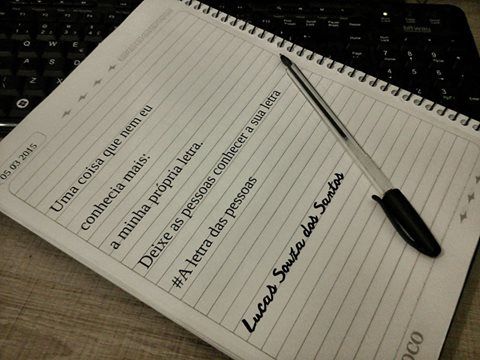 05 03 2015
Uma coisa que nem eu
conhecia mais:
a minha própria letra.
Deixe as pessoas conhecer a sua letra
#A letra das pessoas
Lucas Souza dos Santos